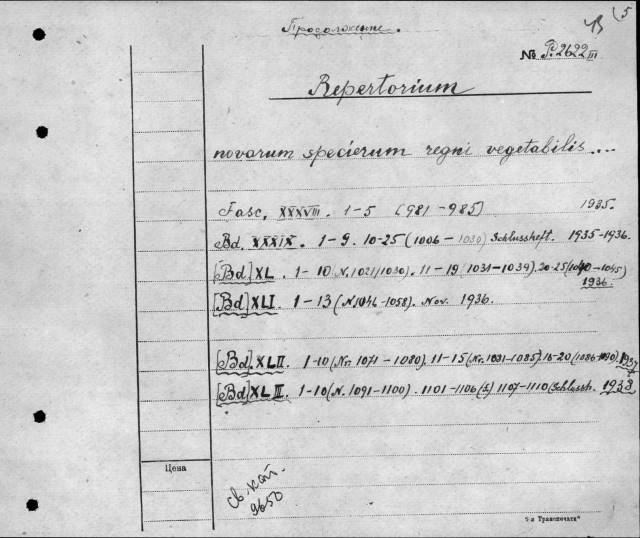 Продолжение.
№ P.2622 III
Repertorium
novarum specierum regni vegetabilis...
Fasc. XXXVIII. 1-5 [981-985] 1935.
Bd. XXXIX. 1-9. 10-25 (1006-1030) Schlussheft. 1935-1936.
[Bd] XL. 1-10 (N. 1021/1030). 11-19 (1031-1039). 20-25 (1040-1045)
1936.
[Bd] XLI. 1-13 (N 1046-1058). Nov. 1936.
[Bd] XLII. 1-10 (Nr. 1071-1080). 11-15 (Nr. 1081-1085). 16-20 (1086-1090). 1937
[Bd] XLIII. 1-10 (N. 1091-1100). 1101-1106 1107-1110 (Schlussh. 1938
Цена
Св. кат.
9650
5-я Транспечати"